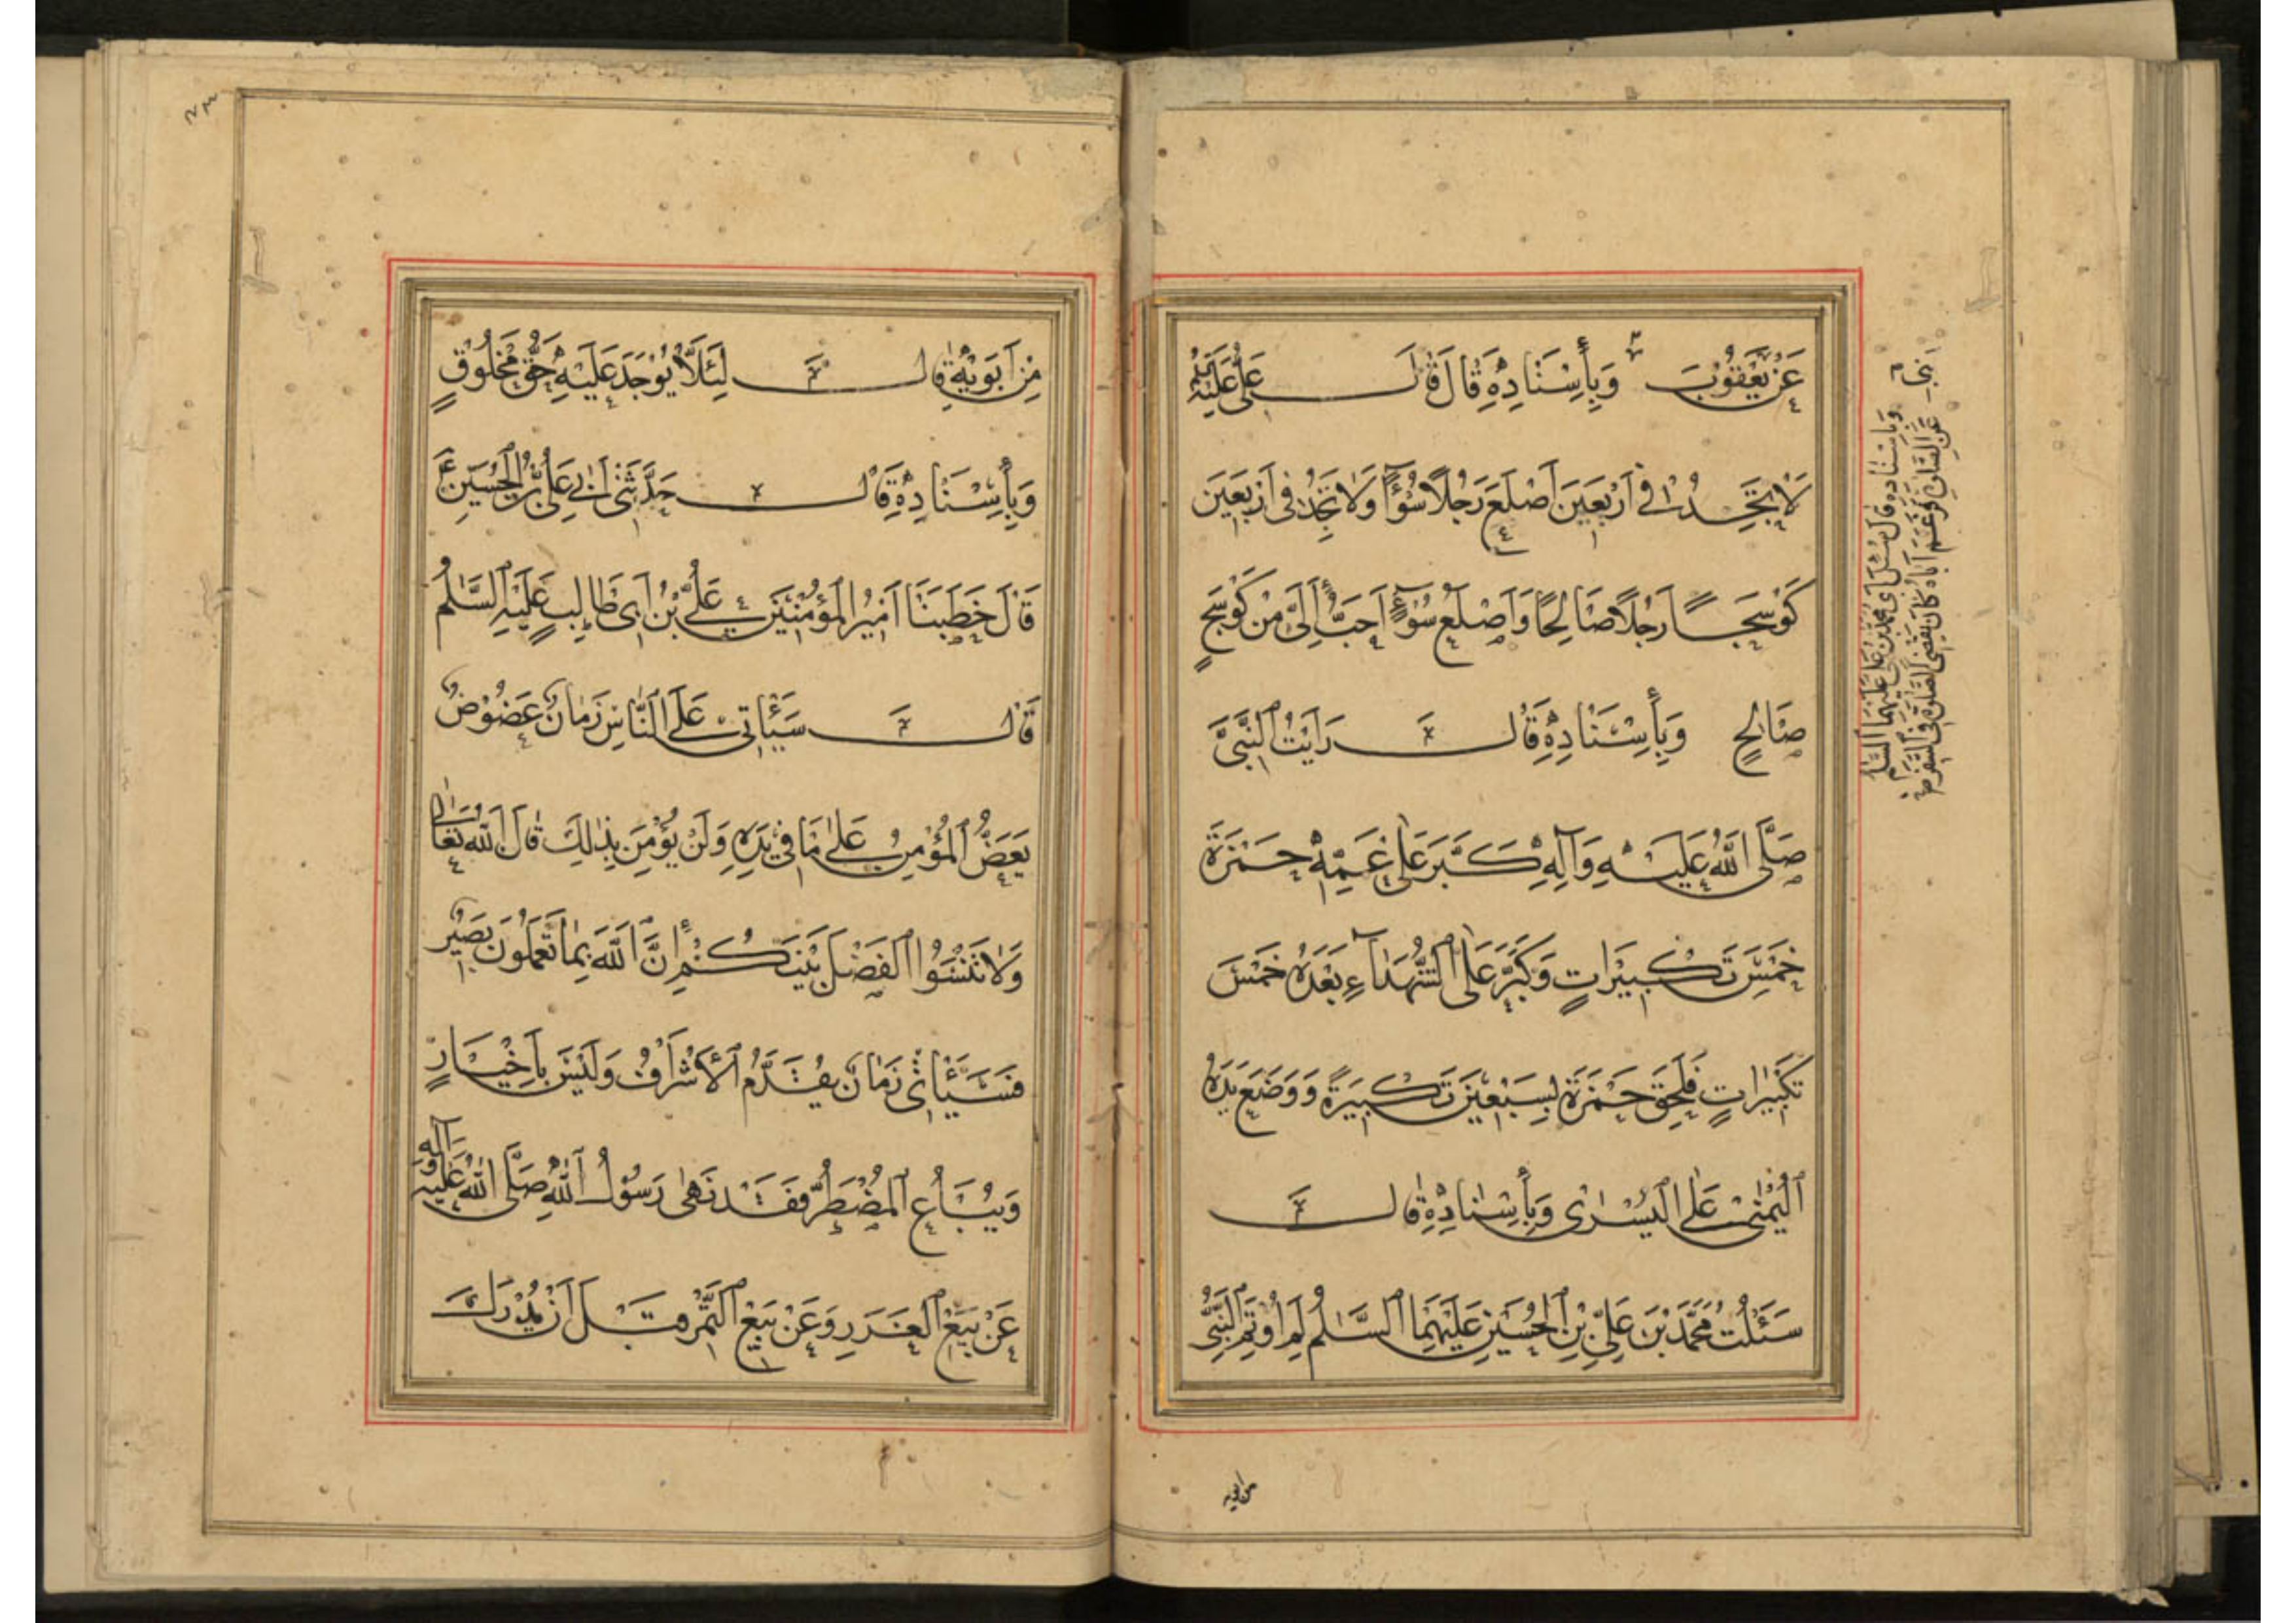 عَنْ يَعْقُوبَ وَبِأِسْنَادِهِ قَالَ قَالَ عَلِيٌّ عَلَيْهِ
لَا تَجِدُ فِي أَرْبَعِينَ أَصْلَعَ رَجُلًا سُوْءًا وَلَا تَجِدُ فِي أَرْبَعِينَ
كَوْسَجًا رَجُلًا صَالِحًا وَأَصْلَعُ سُوْءٍ أَحَبُّ إِلَيَّ مِنْ كَوْسَجٍ
صَالِحٍ وَبِأِسْنَادِهِ قَالَ رَأَيْتُ النَّبِيَّ
صَلَّى اللهُ عَلَيْهِ وَآلِهِ كَبَّرَ عَلَى عَمِّهِ حَمْزَةَ
خَمْسَ تَكْبِيرَاتٍ وَكَبَّرَ عَلَى الشُّهَدَاءِ بَعْدَهُ خَمْسَ
تَكْبِيرَاتٍ فَلَحِقَ حَمْزَةَ بِسَبْعِينَ تَكْبِيرَةً وَوَضَعَ يَدَهُ
الْيُمْنَى عَلَى الْيُسْرَى وَبِأِسْنَادِهِ قَالَ
سَئَلْتُ مُحَمَّدَ بْنَ عَلِيِّ بْنِ الْحُسَيْنِ عَلَيْهِمَا السَّلَامُ لِمَ أُوتِمَ النَّبِيُّ
وَبِأِسْنَادِهِ قَالَ سُئِلَ أَبِي مُحَمَّدُ بْنُ عَلِيٍّ عَلَيْهِمَا السَّلَامُ
عَنِ الصَّلَوةِ فِي السَّفَرِ فَزَعَمَ أَنَّ أَبَاهُ كَانَ يُقَصِّرُ الصَّلَوةَ فِي السَّفَرِ
من ابويه
مِنْ أَبَوَيْهِ قَالَ لِئَلَّا يُوْجَدَ عَلَيْهِ حَقُّ مَخْلُوقٍ
وَبِأِسْنَادِهِ قَالَ حَدَّثَنِي أَبِي عَلِيُّ بْنُ الْحُسَيْنِ ع
قَالَ خَطَبَنَا أَمِيرُ الْمُؤْمِنِينَ عَلِيُّ بْنُ أَبِي طَالِبٍ عَلَيْهِ السَّلَامُ
قَالَ سَيَأْتِي عَلَى النَّاسِ زَمَانٌ عَضُوضٌ
يَعَضُّ الْمُؤْمِنُ عَلَى مَا فِي يَدِهِ وَلَنْ يُؤْمَنَ بِذَلِكَ قَالَ اللهُ تَعَالَى
وَلَا تَنْسَوُا الْفَضْلَ بَيْنَكُمْ إِنَّ اللهَ بِمَا تَعْمَلُونَ بَصِيرٌ
فَسَيَأْتِي زَمَانٌ يُقَدَّمُ الْأَشْرَافُ وَلَيْسَ بِأَخْيَارٍ
وَيُبَاعُ الْمُضْطَرُّ فَقَدْ نَهَى رَسُولُ اللهِ صَلَّى اللهُ عَلَيْهِ وَآلِهِ
عَنْ بَيْعِ الْغَرَرِ وَعَنْ بَيْعِ الثَّمَرِ قَبْلَ أَنْ يُدْرَكَ